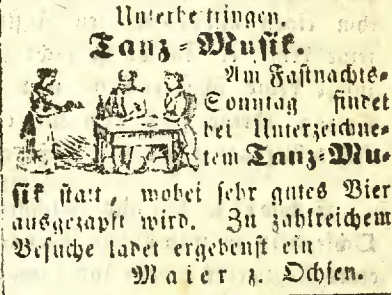 Unterbettringen.
Tanz-Musik.
Am Fastnachts-
Sonntag findet
bei Unterzeichne-
tem Tanz-Mu-
sik statt, wobei sehr gutes Bier
ausgezapft wird. Zu zahlreichem
Besuche ladet ergebenst ein
Maier z. Ochsen.